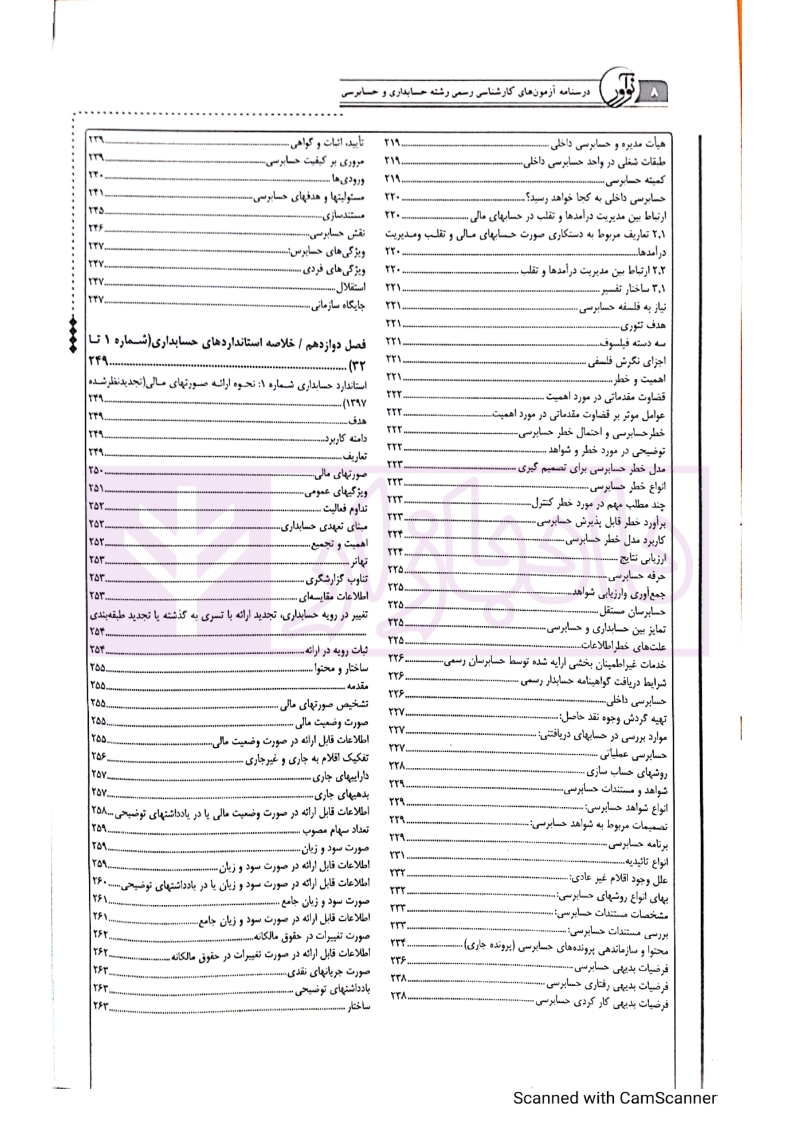 ۸
نوآور
درسنامه آزمون‌های کارشناسی رسمی رشته حسابداری و حسابرسی
هیأت مدیره و حسابرسی داخلی ۲۱۹
طبقات شغلی در واحد حسابرسی داخلی ۲۱۹
کمیته حسابرسی ۲۱۹
حسابرسی داخلی به کجا خواهد رسید؟ ۲۲۰
ارتباط بین مدیریت درآمدها و تقلب در حسابهای مالی ۲۲۰
۲.۱ تعاریف مربوط به دستکاری صورت حسابهای مالی و تقلب ومدیریت
درآمدها ۲۲۰
۲.۲ ارتباط بین مدیریت درآمدها و تقلب ۲۲۰
۳.۱ ساختار تفسیر ۲۲۱
نیاز به فلسفه حسابرسی ۲۲۱
هدف تئوری ۲۲۱
سه دسته فیلسوف ۲۲۱
اجزای نگرش فلسفی ۲۲۱
اهمیت و خطر ۲۲۱
قضاوت مقدماتی در مورد اهمیت ۲۲۲
عوامل موثر بر قضاوت مقدماتی در مورد اهمیت ۲۲۲
خطرحسابرسی و احتمال خطر حسابرسی ۲۲۲
توضیحی در مورد خطر و شواهد ۲۲۲
مدل خطر حسابرسی برای تصمیم گیری ۲۲۳
انواع خطر حسابرسی ۲۲۳
چند مطلب مهم در مورد خطر کنترل ۲۲۳
برآورد خطر قابل پذیرش حسابرسی ۲۲۳
کاربرد مدل خطر حسابرسی ۲۲۴
ارزیابی نتایج ۲۲۴
حرفه حسابرسی ۲۲۵
جمع‌آوری وارزیابی شواهد ۲۲۵
حسابرسان مستقل ۲۲۵
تمایز بین حسابداری و حسابرسی ۲۲۵
علت‌های خطراطلاعات ۲۲۵
خدمات غیراطمینان بخشی ارایه شده توسط حسابرسان رسمی ۲۲۶
شرایط دریافت گواهینامه حسابدار رسمی ۲۲۶
حسابرسی داخلی ۲۲۶
تهیه گردش وجوه نقد حاصل: ۲۲۷
موارد بررسی در حسابهای دریافتنی: ۲۲۷
حسابرسی عملیاتی ۲۲۷
روشهای حساب سازی ۲۲۸
شواهد و مستندات حسابرسی ۲۲۹
انواع شواهد حسابرسی: ۲۲۹
تصمیمات مربوط به شواهد حسابرسی: ۲۲۹
برنامه حسابرسی ۲۲۹
انواع تائیدیه ۲۳۱
علل وجود اقلام غیر عادی: ۲۳۲
بهای انواع روشهای حسابرسی: ۲۳۲
مشخصات مستندات حسابرسی: ۲۳۳
بررسی مستندات حسابرسی: ۲۳۳
محتوا و سازماندهی پرونده‌های حسابرسی (پرونده جاری) ۲۳۴
فرضیات بدیهی حسابرسی ۲۳۶
فرضیات بدیهی رفتاری حسابرسی ۲۳۸
فرضیات بدیهی کار کردی حسابرسی ۲۳۸
تأیید، اثبات و گواهی ۲۳۹
مروری بر کیفیت حسابرسی ۲۳۹
ورودی‌ها ۲۴۰
مسئولیتها و هدفهای حسابرسی ۲۴۱
مستندسازی ۲۴۵
نقش حسابرسی ۲۴۶
ویژگی‌های حسابرس: ۲۴۷
ویژگی‌های فردی ۲۴۷
استقلال ۲۴۷
جایگاه سازمانی ۲۴۷
فصل دوازدهم / خلاصه استانداردهای حسابداری(شماره ۱ تا
۳۲) ۲۴۹
استاندارد حسابداری شماره ۱: نحوه ارائه صورتهای مالی(تجدیدنظرشده
۱۳۹۷) ۲۴۹
هدف ۲۴۹
دامنه کاربرد ۲۴۹
تعاریف ۲۴۹
صورتهای مالی ۲۵۰
ویژگیهای عمومی ۲۵۱
تداوم فعالیت ۲۵۲
مبنای تعهدی حسابداری ۲۵۲
اهمیت و تجمیع ۲۵۲
تهاتر ۲۵۳
تناوب گزارشگری ۲۵۳
اطلاعات مقایسه‌ای ۲۵۳
تغییر در رویه حسابداری، تجدید ارائه با تسری به گذشته یا تجدید طبقه‌بندی
۲۵۴
ثبات رویه در ارائه ۲۵۴
ساختار و محتوا ۲۵۵
مقدمه ۲۵۵
تشخیص صورتهای مالی ۲۵۵
صورت وضعیت مالی ۲۵۵
اطلاعات قابل ارائه در صورت وضعیت مالی ۲۵۵
تفکیک اقلام به جاری و غیرجاری ۲۵۶
داراییهای جاری ۲۵۷
بدهیهای جاری ۲۵۷
اطلاعات قابل ارائه در صورت وضعیت مالی یا در یادداشتهای توضیحی ۲۵۸
تعداد سهام مصوب ۲۵۹
صورت سود و زیان ۲۵۹
اطلاعات قابل ارائه در صورت سود و زیان ۲۵۹
اطلاعات قابل ارائه در صورت سود و زیان یا در یادداشتهای توضیحی ۲۶۰
صورت سود و زیان جامع ۲۶۱
اطلاعات قابل ارائه در صورت سود و زیان جامع ۲۶۱
صورت تغییرات در حقوق مالکانه ۲۶۲
اطلاعات قابل ارائه در صورت تغییرات در حقوق مالکانه ۲۶۲
صورت جریانهای نقدی ۲۶۳
یادداشتهای توضیحی ۲۶۳
ساختار ۲۶۳
Scanned with CamScanner